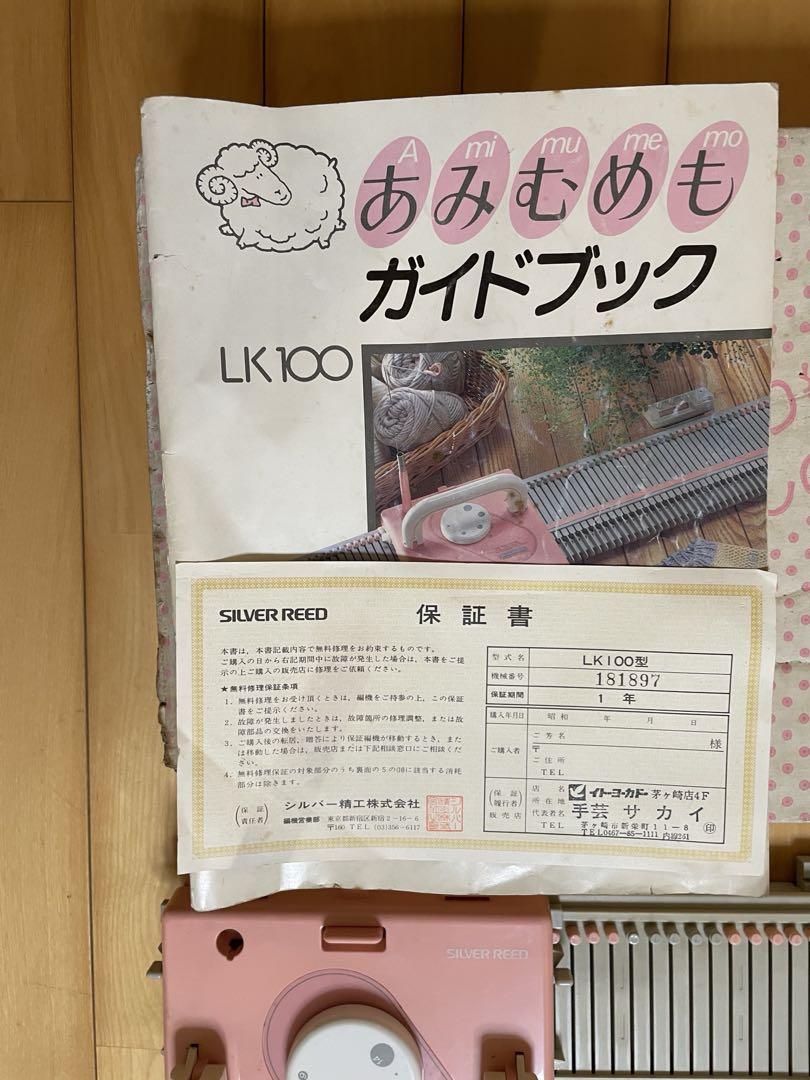 A mi mu me mo
あみむめも
ガイドブック
LK100
SILVER REED
保証書
本書は、本書記載内容で無料修理をお約束するものです。
ご購入の日から右記期間中に故障が発生した場合は、本書をご提
示の上ご購入の販売店に修理をご依頼ください。
★無料修理保証条項
1. 無料修理をお受け頂くときは、編機をご持参の上、この保証
書をご提示ください。
2. 故障が発生しましたときは、故障箇所の修理調整、または故
障部品の交換をいたします。
3. ご購入後の転居、贈答により保証編機が移動するとき、また
は移動した場合は、販売店または下記相談窓口にご相談くださ
い。
4. 無料修理保証の対象部分のうち裏面の5の(8)に該当する消耗
部分は除きます。
(保証責任者)
シルバー精工株式会社
編機営業部 東京都新宿区新宿2-16-6
〒160 TEL (03)356-6117
型式名 LK100型
機械番号 181897
保証期間 1 年
購入年月日 昭和 年 月 日
ご購入者
ご芳名 様
〒
ご住所
TEL
(保証履行者)
販売店
店名 イトーヨーカドー茅ヶ崎店4F
所在地
代表者名 手芸サカイ
茅ヶ崎市新栄町11-8 印
TEL TEL0467-85-1111 内線261
SILVER REED